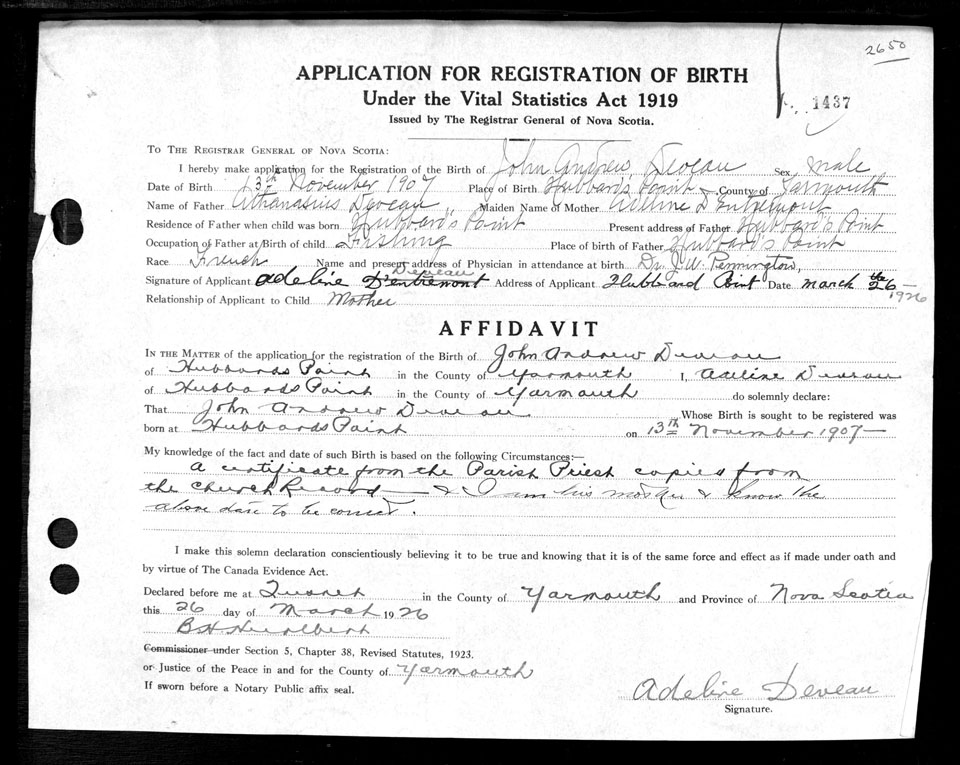 2650
APPLICATION FOR REGISTRATION OF BIRTH
Under the Vital Statistics Act 1919
1437
Issued by The Registrar General of Nova Scotia.
To The Registrar General of Nova Scotia:
I hereby make application for the Registration of the Birth of John Andrew Deveau Sex Male
Date of Birth 13th November 1907 Place of Birth Hubbard's Point & County of Yarmouth
Name of Father Athanasius Deveau Maiden Name of Mother Adeline D'Entremont
Residence of Father when child was born Hubbard's Point Present address of Father Hubbard's Point
Occupation of Father at Birth of child Fishing Place of birth of Father Hubbard's Point
Race French Name and present address of Physician in attendance at birth Dr. J.W. Pennington,
Deveau
Signature of Applicant Adeline D'entremont Address of Applicant Hubbard Point Date March the 26 - 1926
Relationship of Applicant to Child Mother
AFFIDAVIT
In the Matter of the application for the registration of the Birth of John Andrew Deveau
of Hubbards Point in the County of Yarmouth I, Adeline Deveau
of Hubbards Point in the County of Yarmouth do solemnly declare:
That John Andrew Deveau Whose Birth is sought to be registered was
born at Hubbards Point on 13th November 1907-
My knowledge of the fact and date of such Birth is based on the following Circumstances:-
A certificate from the Parish Priest copied from
the Church Record - & I am his mother & know the
above date to be correct.
I make this solemn declaration conscientiously believing it to be true and knowing that it is of the same force and effect as if made under oath and
by virtue of The Canada Evidence Act.
Declared before me at Tusket in the County of Yarmouth and Province of Nova Scotia
this 26 day of March 1926
Commissioner under Section 5, Chapter 38, Revised Statutes, 1923.
or Justice of the Peace in and for the County of Yarmouth
If sworn before a Notary Public affix seal.
Adeline Deveau
Signature.